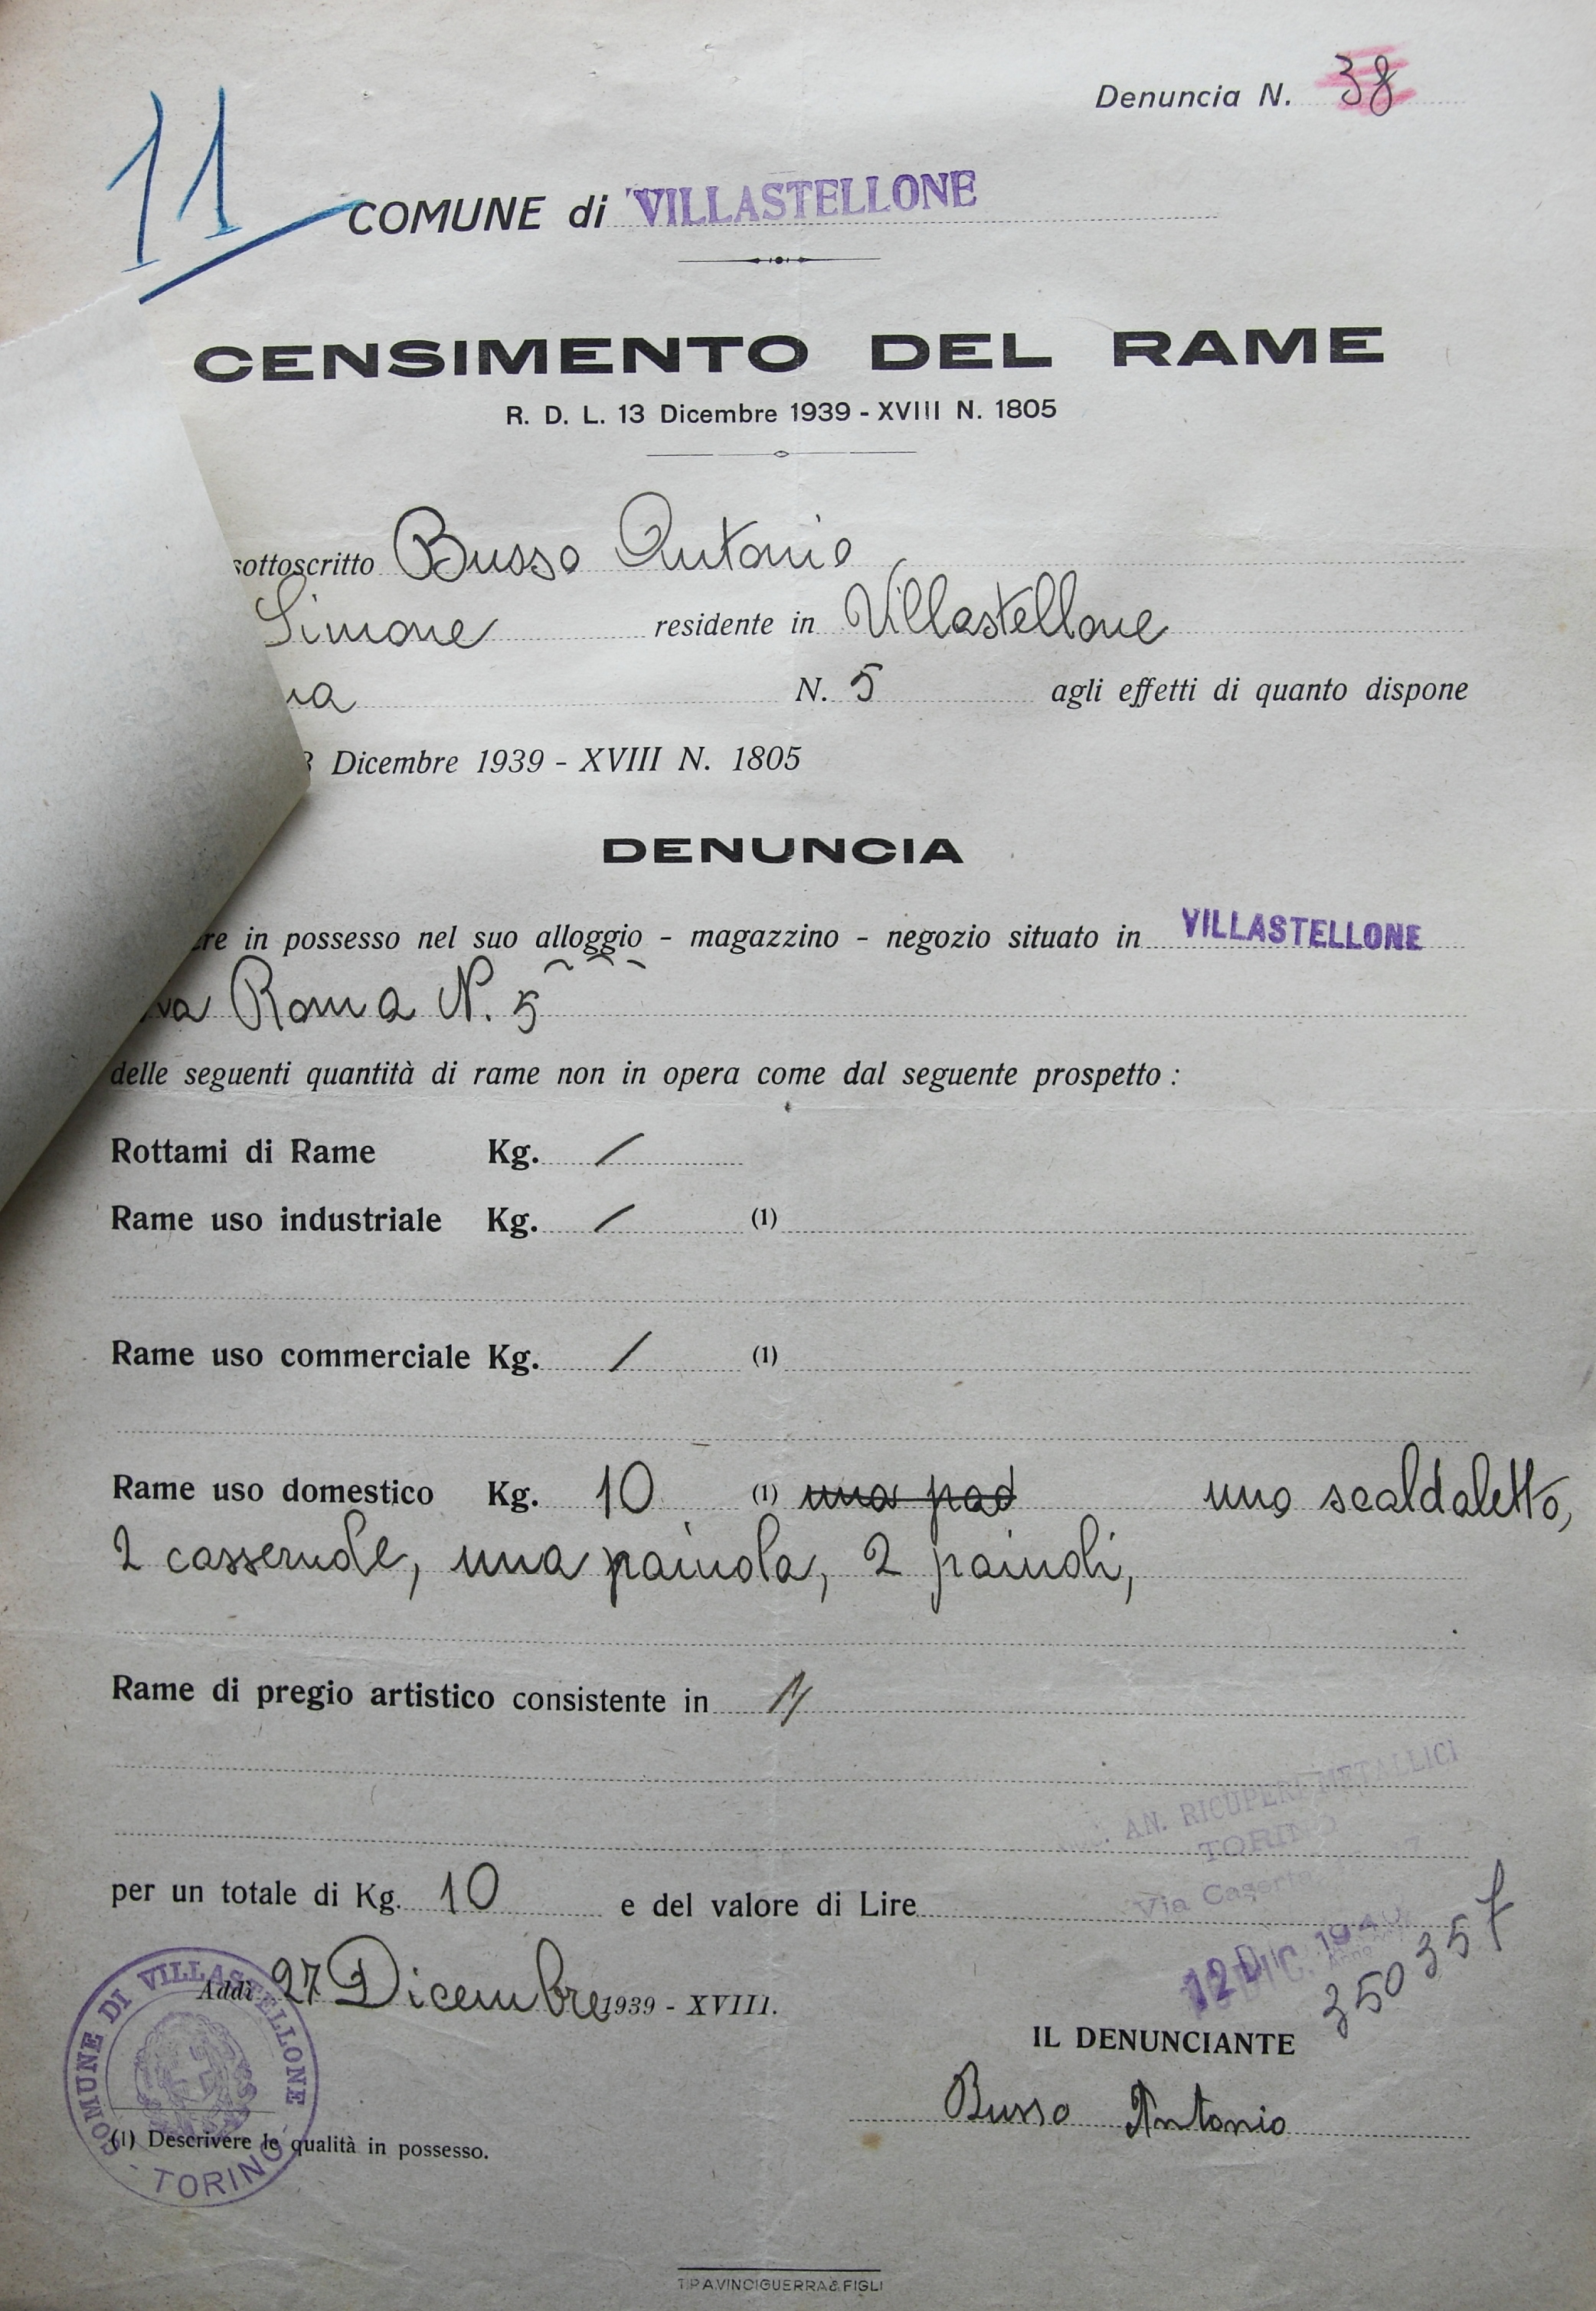 Denuncia N. 38
11
COMUNE di VILLASTELLONE
CENSIMENTO DEL RAME
R. D. L. 13 Dicembre 1939 - XVIII N. 1805
sottoscritto Busso Antonio
Simone residente in Villastellone
N. 5 agli effetti di quanto dispone
Dicembre 1939 - XVIII N. 1805
DENUNCIA
in possesso nel suo alloggio - magazzino - negozio situato in VILLASTELLONE
Roma N. 5
delle seguenti quantità di rame non in opera come dal seguente prospetto :
Rottami di Rame Kg. /
Rame uso industriale Kg. / (1)
Rame uso commerciale Kg. / (1)
Rame uso domestico Kg. 10 (1) una pad uno scaldaletto,
2 casseruole, una paiuola, 2 paiuoli,
Rame di pregio artistico consistente in
AN. RICUPERI METALLICI
TORINO
Via Caserta
per un totale di Kg. 10 e del valore di Lire
12 DIC. 1940
350357
Addì 27 Dicembre 1939 - XVIII.
IL DENUNCIANTE
Busso Antonio
COMUNE DI VILLASTELLONE
- TORINO -
(1) Descrivere le qualità in possesso.
TIP. A. VINCIGUERRA & FIGLI